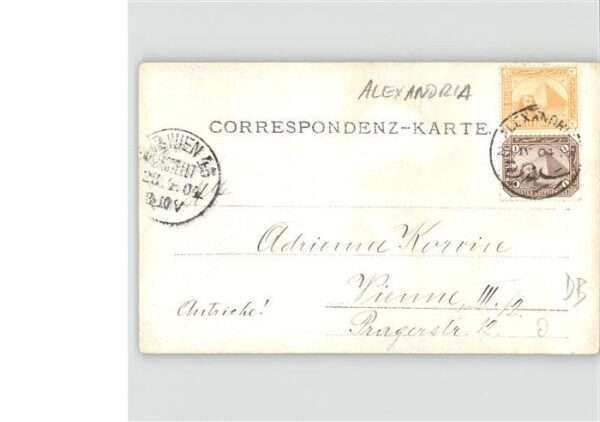 ALEXANDRIA
CORRESPONDENZ-KARTE.
ALEXANDRI
WIEN
Adrienne Korvin
Vienne, III/2.
Autriche!
Pragerstr. 12
DB